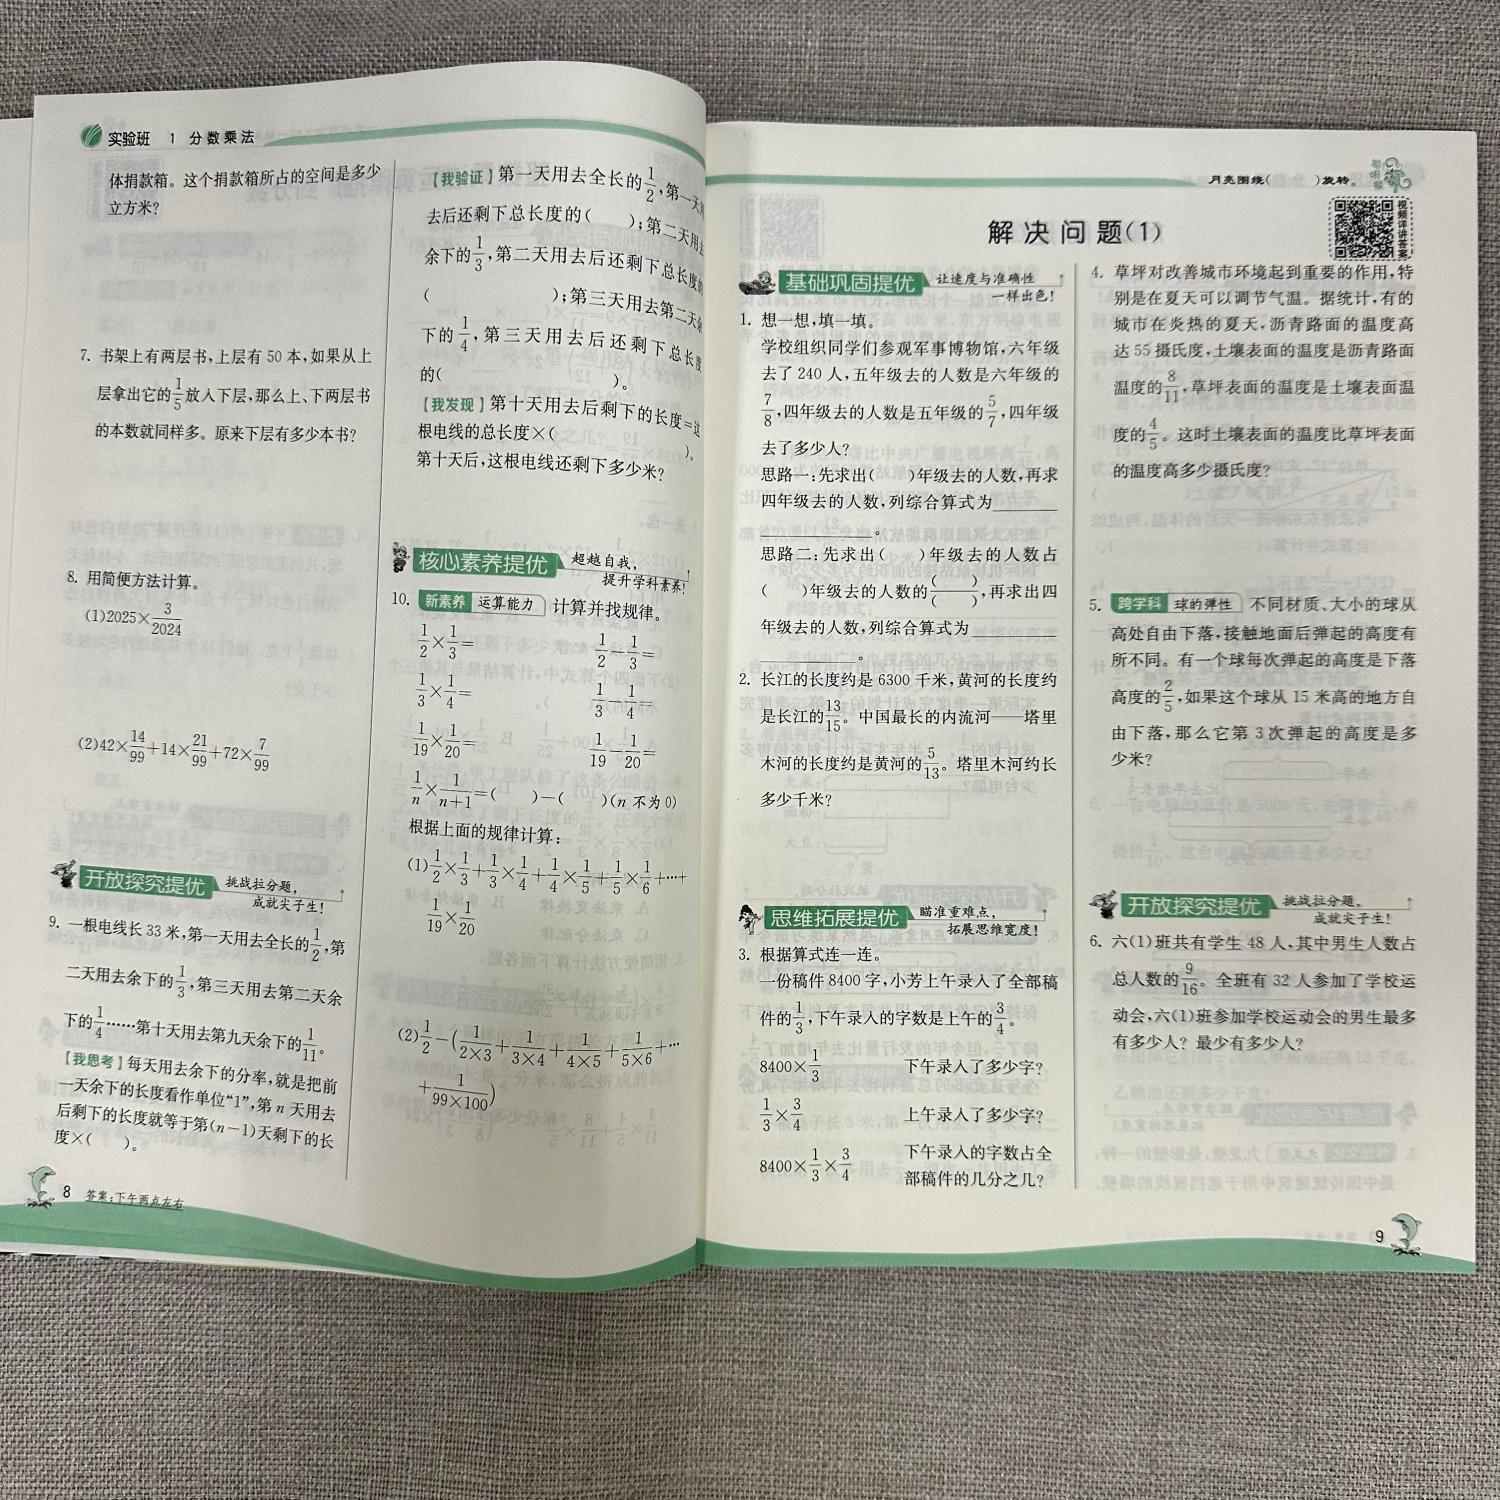 实验班 1 分数乘法
体捐款箱。这个捐款箱所占的空间是多少
立方米?
7. 书架上有两层书,上层有50本,如果从上
层拿出它的1/5放入下层,那么上、下两层书
的本数就同样多。原来下层有多少本书?
8. 用简便方法计算。
(1)2025×3/2024
(2)42×14/99+14×21/99+72×7/99
开放探究提优 挑战拉分题,
成就尖子生!
9. 一根电线长33米,第一天用去全长的1/2,第
二天用去余下的1/3,第三天用去第二天余
下的1/4……第十天用去第九天余下的1/11。
【我思考】每天用去余下的分率,就是把前
一天余下的长度看作单位“1”,第n天用去
后剩下的长度就等于第(n-1)天剩下的长
度×( )。
8 答案:下午两点左右
【我验证】第一天用去全长的1/2,第一天
去后还剩下总长度的( );第二天用去
余下的1/3,第二天用去后还剩下总长度的
( );第三天用去第二天余
下的1/4,第三天用去后还剩下总长度
的( )。
【我发现】第十天用去后剩下的长度=这
根电线的总长度×( )。
第十天后,这根电线还剩下多少米?
核心素养提优 超越自我,
提升学科素养!
10. 新素养 运算能力 计算并找规律。
1/2×1/3= 1/2-1/3=
1/3×1/4= 1/3-1/4=
1/19×1/20= 1/19-1/20=
1/n×1/n+1=( )-( )(n不为0)
根据上面的规律计算:
(1)1/2×1/3+1/3×1/4+1/4×1/5+1/5×1/6+…+
1/19×1/20
(2)1/2-(1/2×3+1/3×4+1/4×5+1/5×6+…
+1/99×100)
月亮围绕( )旋转。
聪明屋
解决问题(1)
视频详讲答案
基础巩固提优 让速度与准确性
一样出色!
1. 想一想,填一填。
学校组织同学们参观军事博物馆,六年级
去了240人,五年级去的人数是六年级的
7/8,四年级去的人数是五年级的5/7,四年级
去了多少人?
思路一:先求出( )年级去的人数,再求
四年级去的人数,列综合算式为
。
思路二:先求出( )年级去的人数占
( )年级去的人数的( )/( ),再求出四
年级去的人数,列综合算式为
。
2. 长江的长度约是6300千米,黄河的长度约
是长江的13/15。中国最长的内流河——塔里
木河的长度约是黄河的5/13。塔里木河约长
多少千米?
思维拓展提优 瞄准重难点,
拓展思维宽度!
3. 根据算式连一连。
一份稿件8400字,小芳上午录入了全部稿
件的1/3,下午录入的字数是上午的3/4。
8400×1/3 下午录入了多少字?
1/3×3/4 上午录入了多少字?
8400×1/3×3/4 下午录入的字数占全
部稿件的几分之几?
4. 草坪对改善城市环境起到重要的作用,特
别是在夏天可以调节气温。据统计,有的
城市在炎热的夏天,沥青路面的温度高
达55摄氏度,土壤表面的温度是沥青路面
温度的8/11,草坪表面的温度是土壤表面温
度的4/5。这时土壤表面的温度比草坪表面
的温度高多少摄氏度?
5. 跨学科 球的弹性 不同材质、大小的球从
高处自由下落,接触地面后弹起的高度有
所不同。有一个球每次弹起的高度是下落
高度的2/5,如果这个球从15米高的地方自
由下落,那么它第3次弹起的高度是多
少米?
开放探究提优 挑战拉分题,
成就尖子生!
6. 六(1)班共有学生48人,其中男生人数占
总人数的9/16。全班有32人参加了学校运
动会,六(1)班参加学校运动会的男生最多
有多少人?最少有多少人?
9